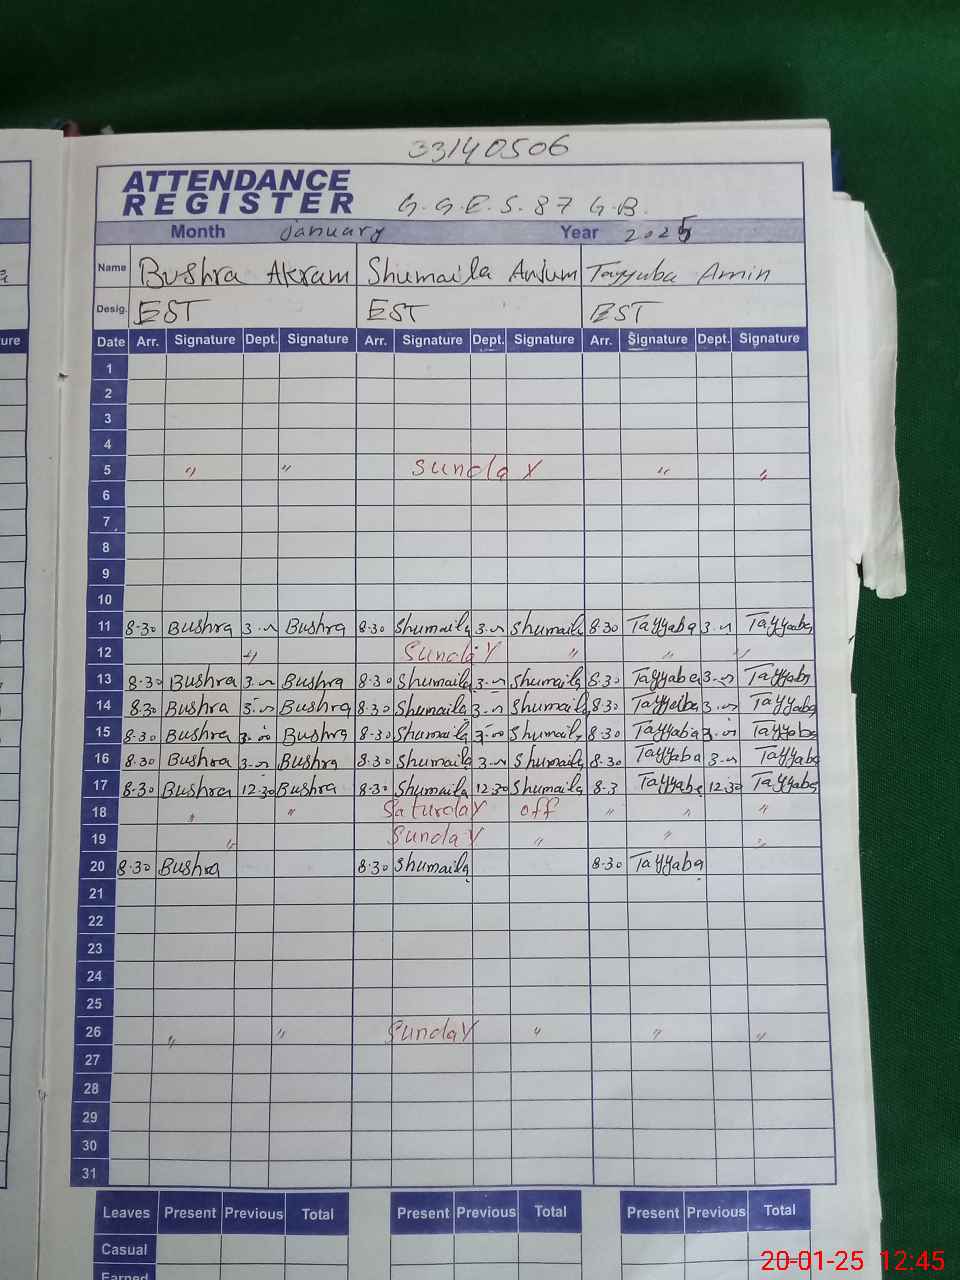 33140506
ATTENDANCE
REGISTER G.G.E.S. 87 G.B.
Month January Year 2025
Name Bushra Akram Shumaila Anjum Tayyuba Amin
Desig. EST EST EST
Date Arr. Signature Dept. Signature Arr. Signature Dept. Signature Arr. Signature Dept. Signature
1
2
3
4
5 " " Sunday " "
6
7
8
9
10
11 8-30 Bushra 3-00 Bushra 8-30 Shumaila 3-00 Shumaila 8-30 Tayyaba 3-00 Tayyaba
12 " Sunday " " "
13 8-30 Bushra 3-00 Bushra 8-30 Shumaila 3-00 Shumaila 8-30 Tayyaba 3-00 Tayyaba
14 8-30 Bushra 3-00 Bushra 8-30 Shumaila 3-00 Shumaila 8-30 Tayyaba 3-00 Tayyaba
15 8-30 Bushra 3-00 Bushra 8-30 Shumaila 3-00 Shumaila 8-30 Tayyaba 3-00 Tayyaba
16 8-30 Bushra 3-00 Bushra 8-30 Shumaila 3-00 Shumaila 8-30 Tayyaba 3-00 Tayyaba
17 8-30 Bushra 12.30 Bushra 8-30 Shumaila 12.30 Shumaila 8-3 Tayyaba 12.30 Tayyaba
18 " " Saturday off " " "
19 " Sunday " " "
20 8-30 Bushra 8-30 Shumaila 8-30 Tayyaba
21
22
23
24
25
26 " " Sunday " " "
27
28
29
30
31
Leaves Present Previous Total Present Previous Total Present Previous Total
Casual
Earned
20-01-25 12:45